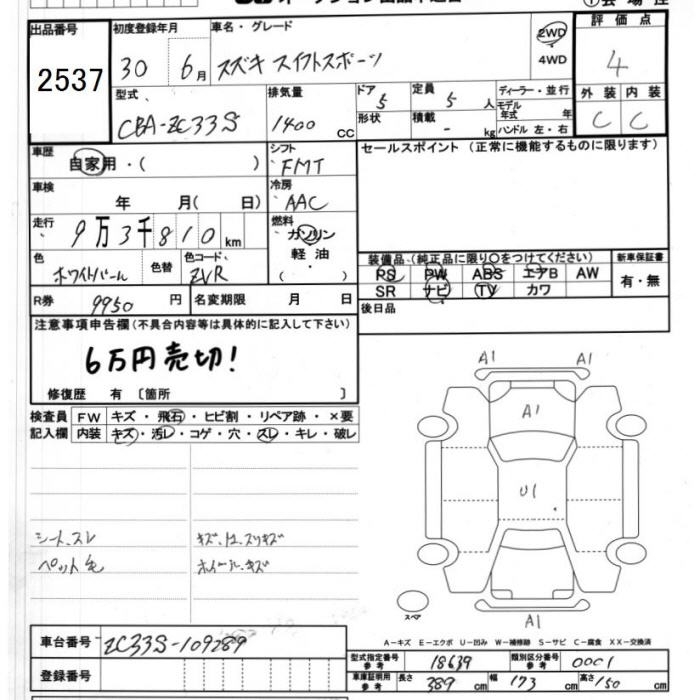 出品番号
2537
初度登録年月
30 6月
車名・グレード
スズキ スイフトスポーツ
2WD
4WD
評価点
4
型式
CBA-ZC33S
排気量
1400 cc
ドア
5
形状
定員
5 人
積載
- kg
ディーラー・並行
モデル年式 年
ハンドル 左・右
外装 内装
C C
車歴
自家用・( )
シフト
FMT
セールスポイント (正常に機能するものに限ります)
車検
年 月( 日)
冷房
AAC
走行
9万3千810km
燃料
ガソリン
軽油
( ・ )
色
ホワイトパール
色替
色コード
ZVR
装備品 (純正品に限り○をつけてください)
PS PW ABS エアB AW
SR ナビ TV カワ
新車保証書
有・無
R券
9950 円
名変期限 月 日
後日品
注意事項申告欄 (不具合内容等は具体的に記入して下さい)
6万円売切!
修復歴 有 〔箇所 〕
検査員記入欄
FW キズ・飛石・ヒビ割・リペア跡・×要
内装 キズ・汚レ・コゲ・穴・スレ・キレ・破レ
シート、スレ
ペット毛
ホイール、キズ
A1 A1
A1
U1
A1
スペア
A-キズ E-エクボ U-凹み W-補修跡 S-サビ C-腐食 XX-交換済
車台番号
ZC33S-109289
登録番号
型式指定番号 参考
18639
類別区分番号 参考
0001
車庫証明用 参考
長さ 389 cm
幅 173 cm
高さ 150 cm